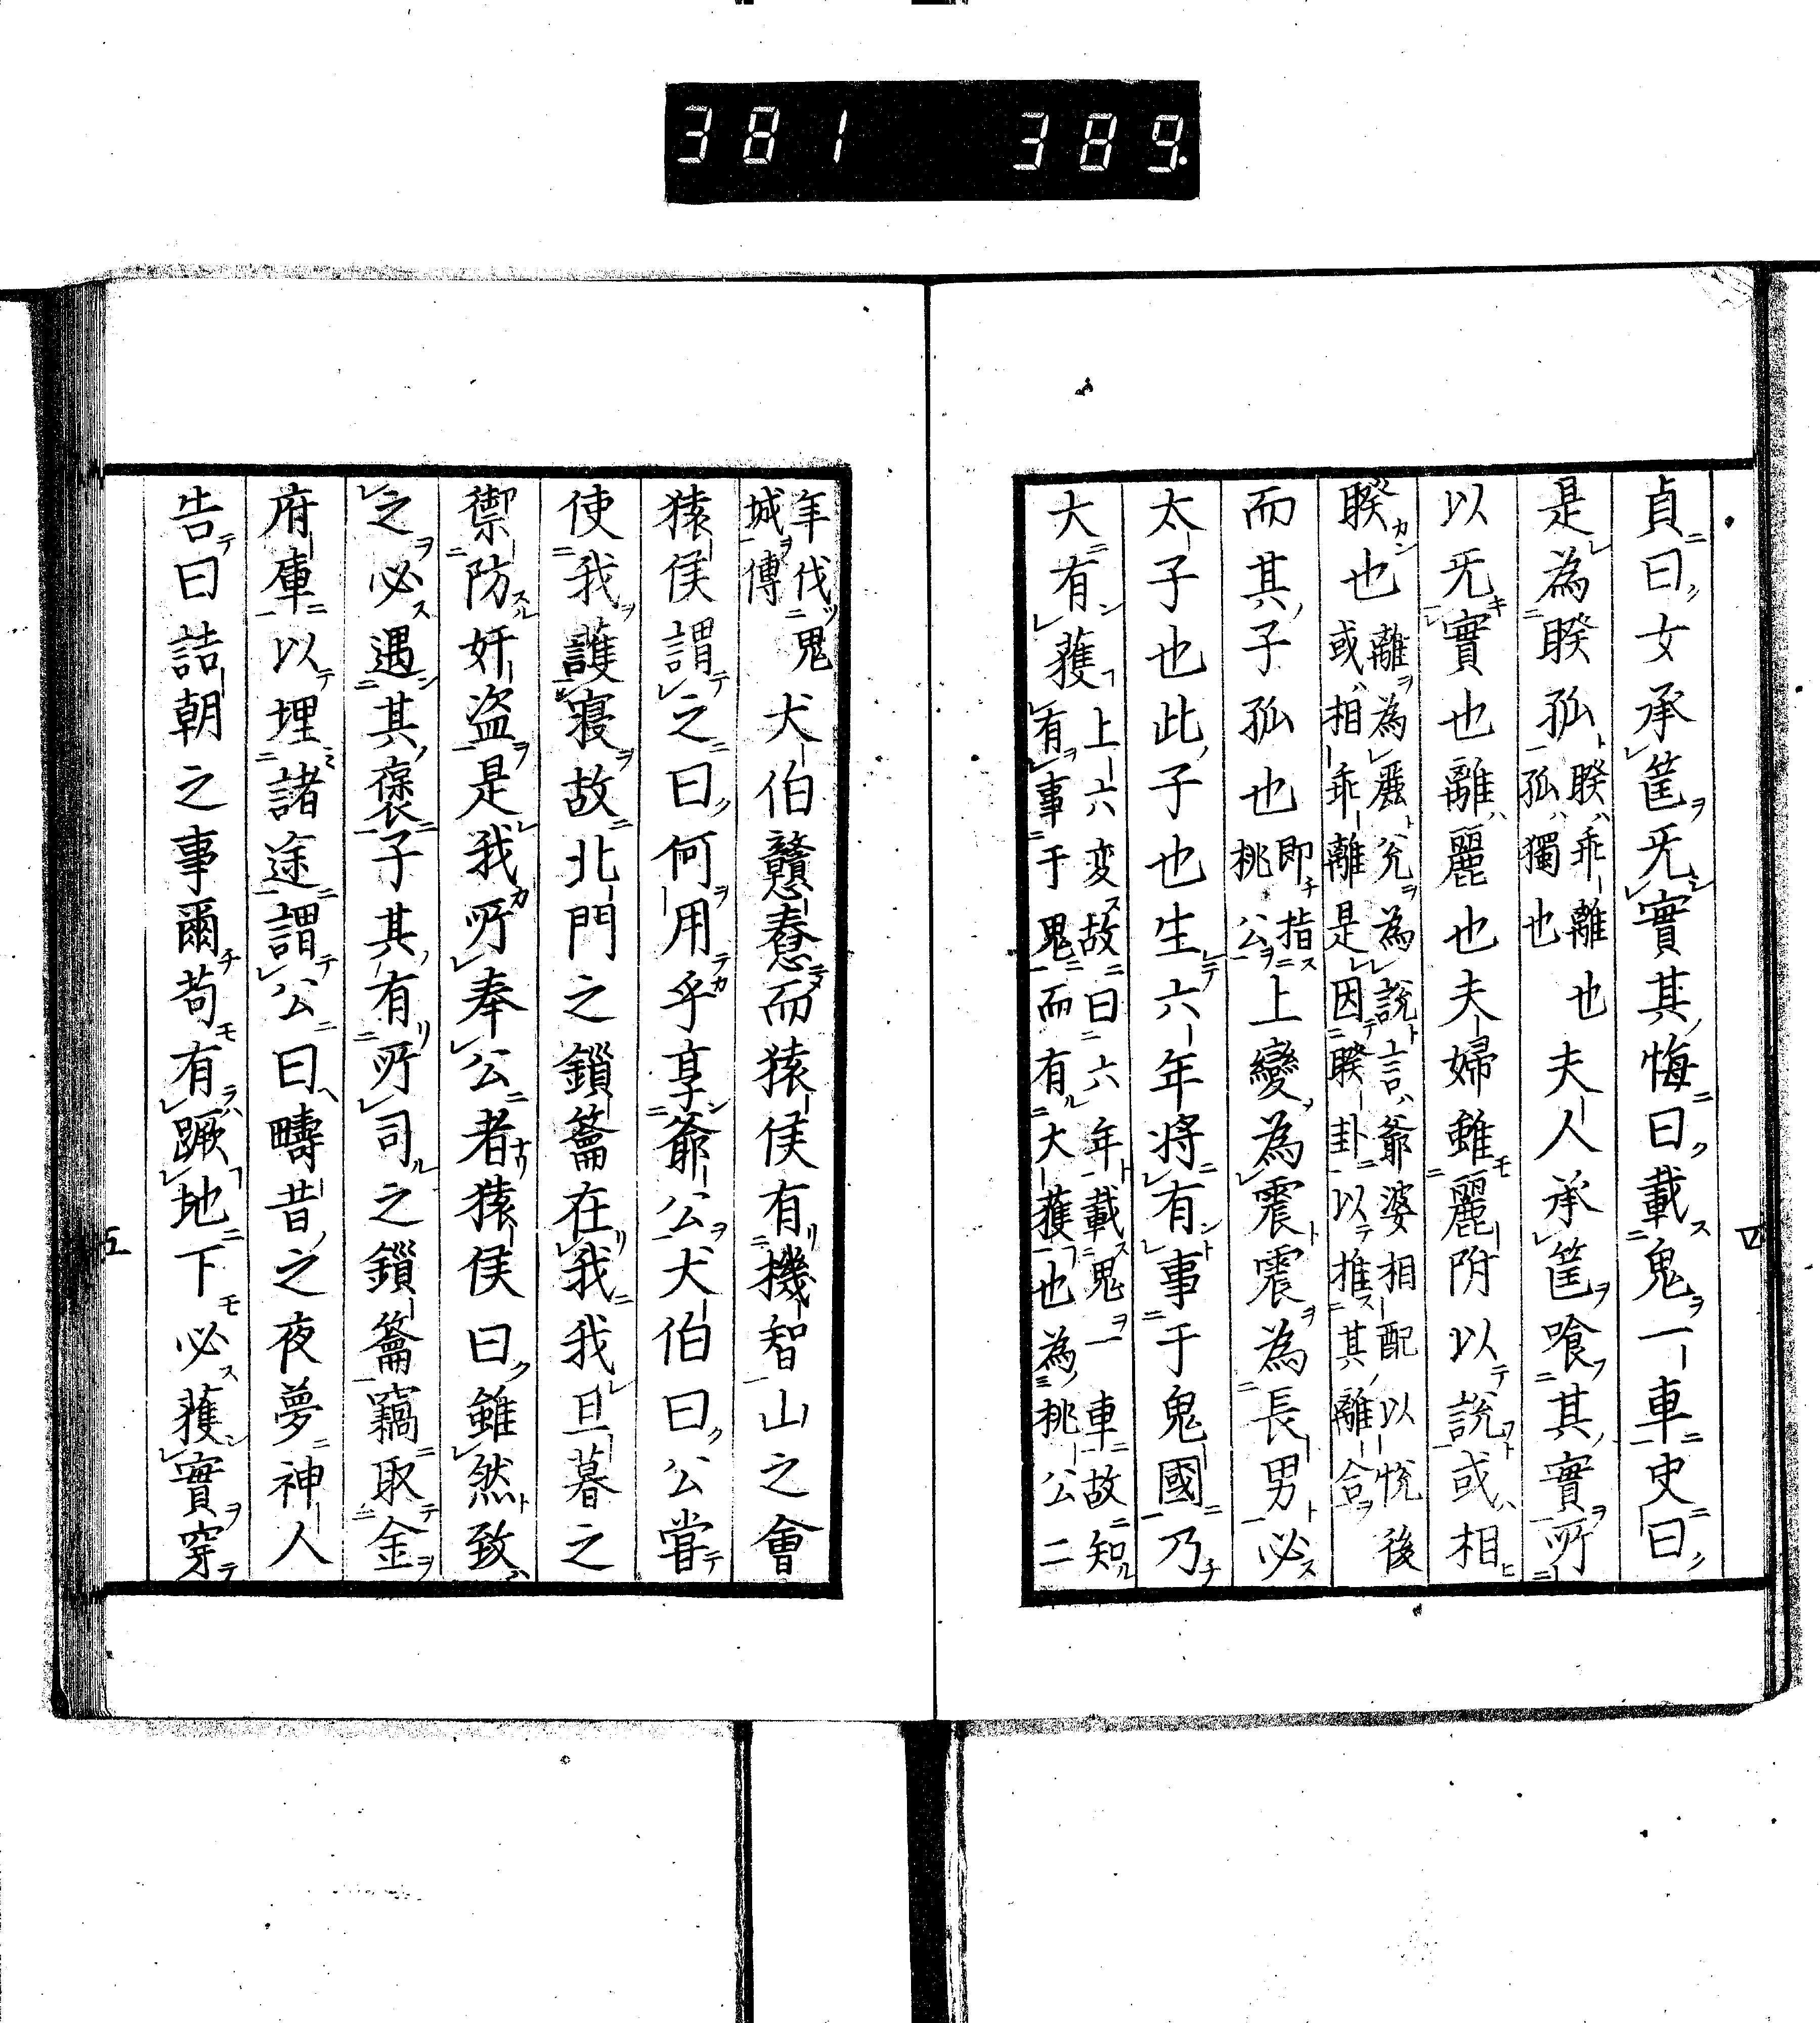 381 389.
貞曰女承筐旡實其悔曰載鬼一車史曰
是為睽孤睽乖離也孤獨也夫人承筐喰其實所
以旡實也離麗也夫婦雖麗附以說或相
睽也離為麗兌為說言爺婆相配以悅後或相乖離是因睽卦以推其離合
而其子孤也即指桃公上變為震震為長男必
太子也此子也生六年將有事于鬼國乃
大有獲上六変故曰六年載鬼一車故知有事于鬼而有大獲也為桃公二
年伐鬼城傳犬伯戇惷而猿侯有機智山之會
猿侯謂之曰何用乎享爺公犬伯曰公嘗
使我護寢故北門之鎖籥在我我旦暮之
禦防奸盗是我所奉公者猿侯曰雖然致
之必遇其褒子其有所司之鎖籥竊取金
府庫以埋諸途謂公曰疇昔之夜夢神人
告曰詰朝之事爾苟有蹶地下必獲實穿
五